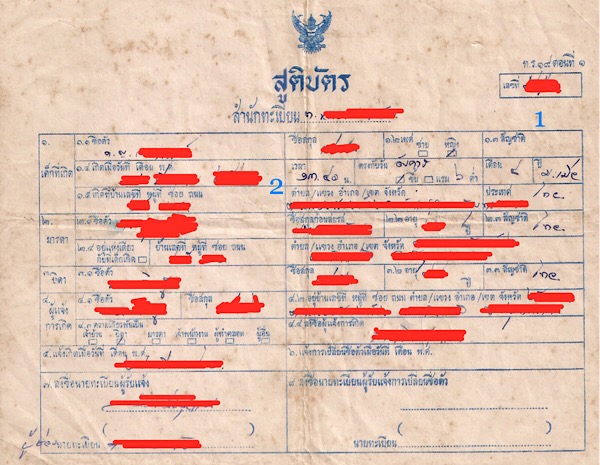 ท.ร.๑๙ ตอนที่ ๑
สูติบัตร
เลขที่
สำนักทะเบียน
1
๑. ๑.๑ ชื่อตัว ชื่อสกุล ๑.๒ เพศ ชาย หญิง ๑.๓ สัญชาติ
เด็กที่เกิด ๑.๔ เกิดเมื่อวันที่ เดือน พ.ศ. เวลา น. ตรงกับวัน อังคาร ขึ้น แรม ๖ ค่ำ เดือน ปี
2
๑.๕ เกิดที่บ้านเลขที่ หมู่ที่ ซอย ถนน ตำบล/แขวง อำเภอ/เขต จังหวัด ประเทศ ไทย
๒. ๒.๑ ชื่อตัว ชื่อสกุลก่อนสมรส ๒.๒ อายุ ปี ๒.๓ สัญชาติ ไทย
มารดา ๒.๔ อยู่แห่งเดียวกับที่เด็กเกิด บ้านเลขที่ หมู่ที่ ซอย ถนน ตำบล/แขวง อำเภอ/เขต จังหวัด
๓. บิดา ๓.๑ ชื่อตัว ชื่อสกุล ๓.๒ อายุ ปี ๓.๓ สัญชาติ ไทย
๔. ๔.๑ ชื่อตัว ชื่อสกุล ๔.๒ อยู่บ้านเลขที่ หมู่ที่ ซอย ถนน ตำบล/แขวง อำเภอ/เขต จังหวัด
ผู้แจ้งการเกิด ๔.๓ ความเกี่ยวพันเป็น ๔.๔ ลงชื่อผู้แจ้งการเกิด
เจ้าบ้าน บิดา มารดา เจ้าพนักงาน ผู้ทำคลอด ผู้อื่น
๕. แจ้งเกิดเมื่อวันที่ เดือน พ.ศ. ๖. แจ้งการเปลี่ยนชื่อตัวเมื่อวันที่ เดือน พ.ศ.
๗. ลงชื่อนายทะเบียนผู้รับแจ้ง ๘. ลงชื่อนายทะเบียนผู้รับแจ้งการเปลี่ยนชื่อตัว
นายทะเบียน นายทะเบียน